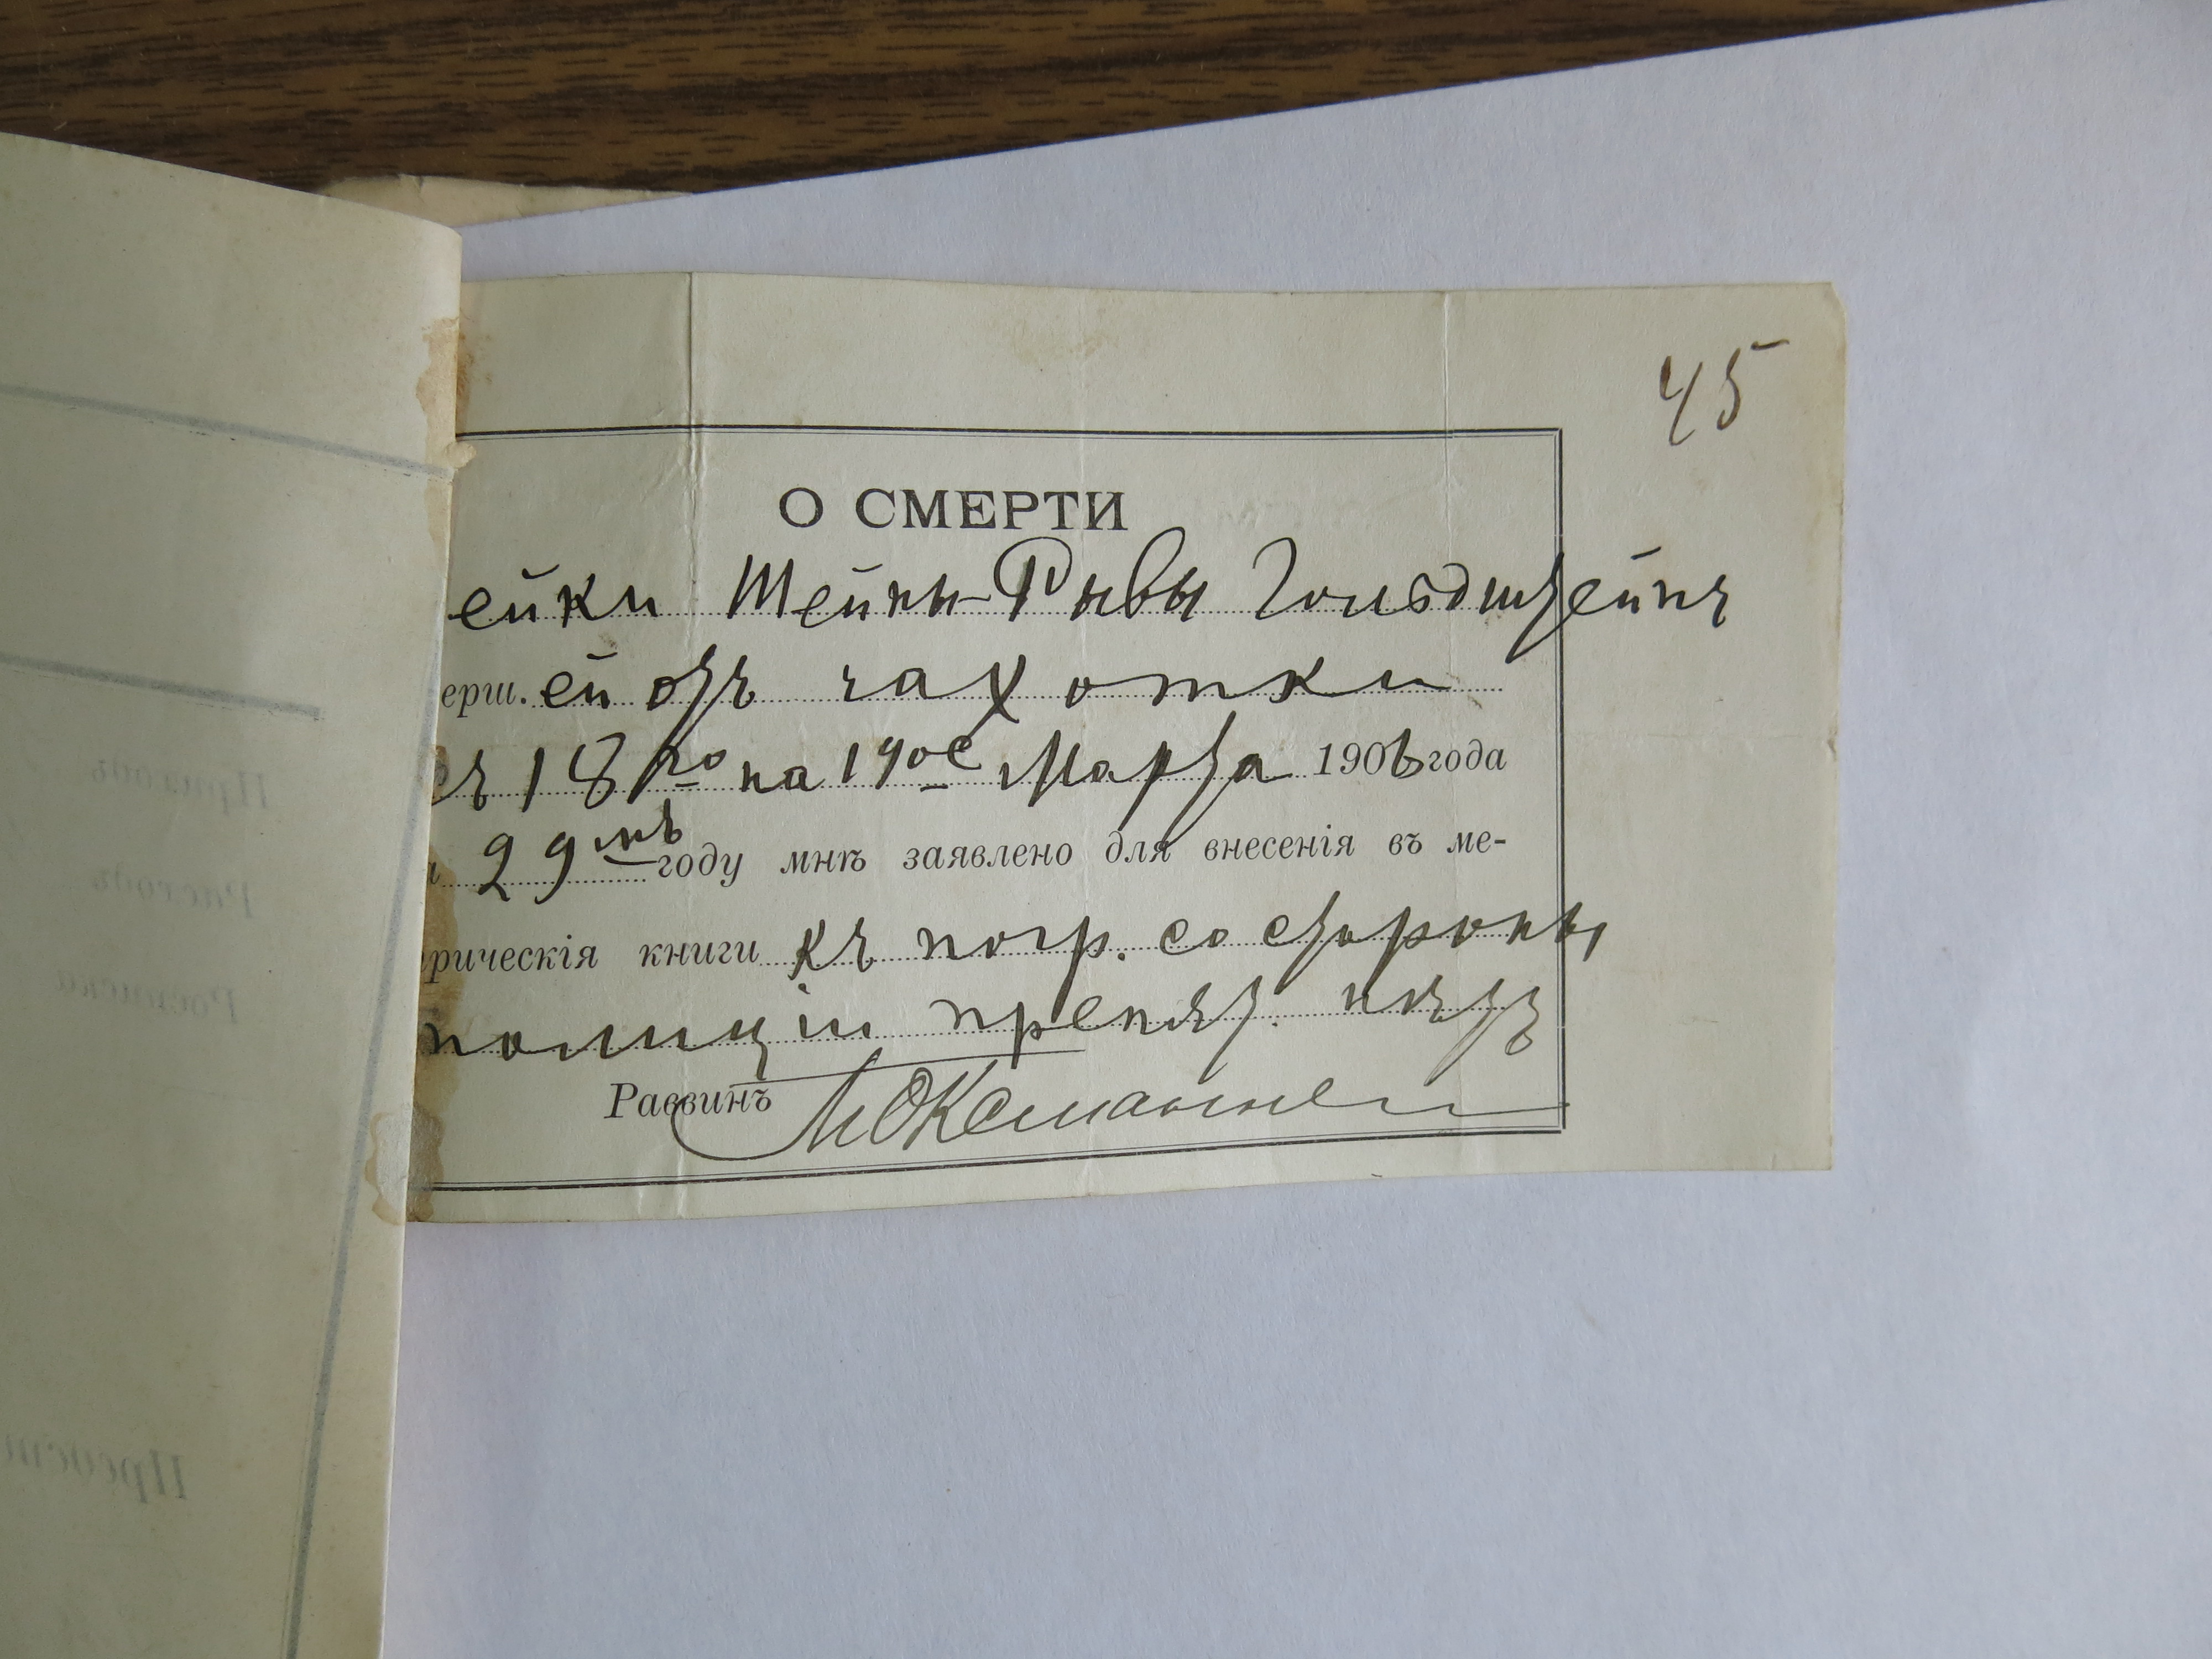 45
О СМЕРТИ
ейки Шейны-Рывы Гольдштейнъ
ерш. ей отъ чахотки
съ 18го на 19ое Марта 1906 года
29мъ году мнѣ заявлено для внесенія въ ме-
рическія книги къ погр. со стороны
полиціи препят. нѣтъ
Раввинъ